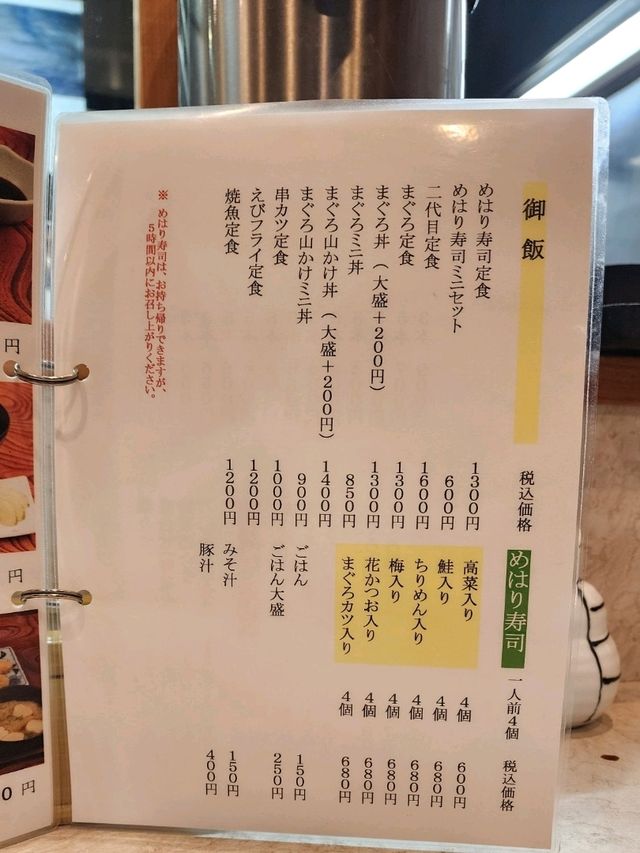 御飯
税込価格
めはり寿司定食 1300円
めはり寿司ミニセット 600円
二代目定食 1600円
まぐろ定食 1300円
まぐろ丼（大盛＋200円） 1300円
まぐろミニ丼 850円
まぐろ山かけ丼（大盛＋200円） 1400円
まぐろ山かけミニ丼 900円
串カツ定食 1000円
えびフライ定食 1200円
焼魚定食 1200円
※ めはり寿司は、お持ち帰りできますが、
5時間以内にお召し上がりください。
めはり寿司 一人前4個 税込価格
高菜入り 4個 600円
鮭入り 4個 680円
ちりめん入り 4個 680円
梅入り 4個 680円
花かつお入り 4個 680円
まぐろカツ入り 4個 680円
ごはん 150円
ごはん大盛 250円
みそ汁 150円
豚汁 400円
円
円
0円